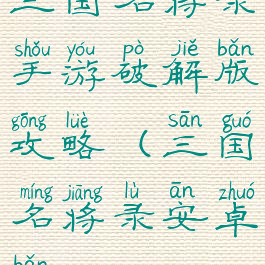 三国名将录
shǒu yóu pò jiě bǎn
手游破解版
gōng lüè sān guó
攻略（三国
míng jiāng lù ān zhuó
名将录安卓
bǎn